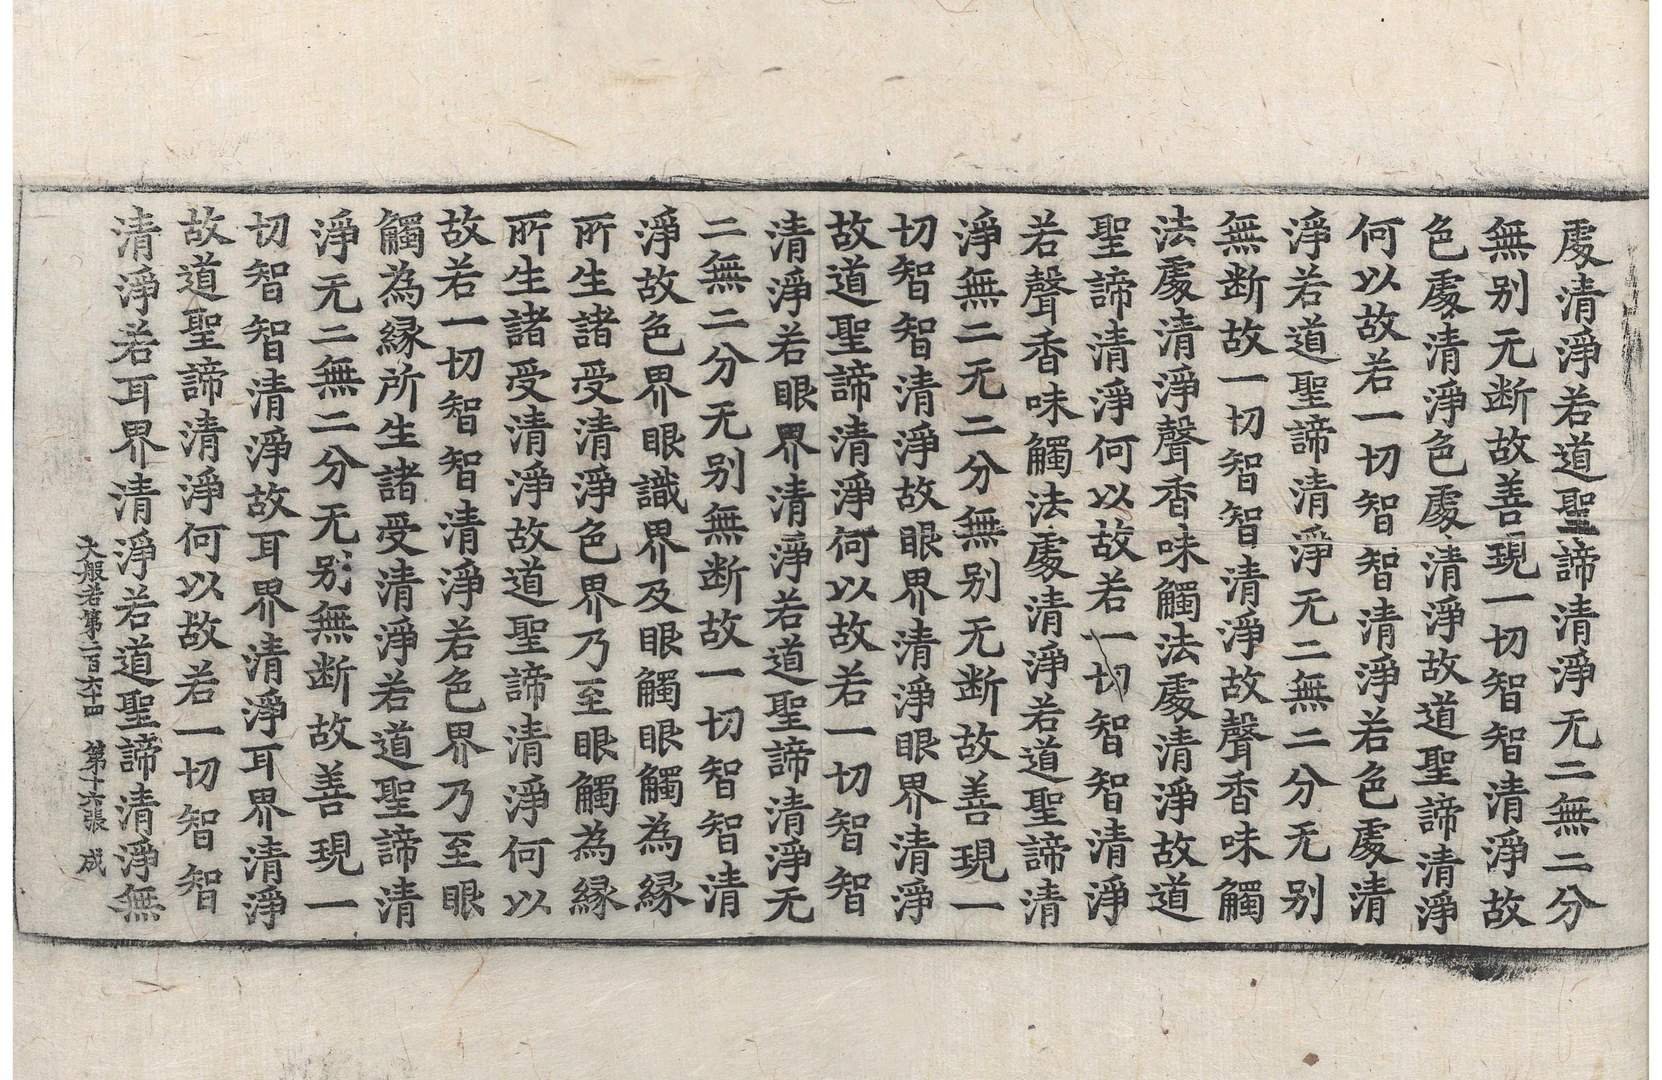 處清淨若道聖諦清淨无二無二分
無别无断故善現一切智智清淨故
色處清淨色處清淨故道聖諦清淨
何以故若一切智智清淨若色處清
淨若道聖諦清淨无二無二分无别
無断故一切智智清淨故聲香味觸
法處清淨聲香味觸法處清淨故道
聖諦清淨何以故若一切智智清淨
若聲香味觸法處清淨若道聖諦清
淨無二无二分無别无断故善現一
切智智清淨故眼界清淨眼界清淨
故道聖諦清淨何以故若一切智智
清淨若眼界清淨若道聖諦清淨无
二無二分无别無断故一切智智清
淨故色界眼識界及眼觸眼觸為縁
所生諸受清淨色界乃至眼觸為縁
所生諸受清淨故道聖諦清淨何以
故若一切智智清淨若色界乃至眼
觸為縁所生諸受清淨若道聖諦清
淨无二無二分无别無断故善現一
切智智清淨故耳界清淨耳界清淨
故道聖諦清淨何以故若一切智智
清淨若耳界清淨若道聖諦清淨無
大般若第二百六十四 第十六張 成